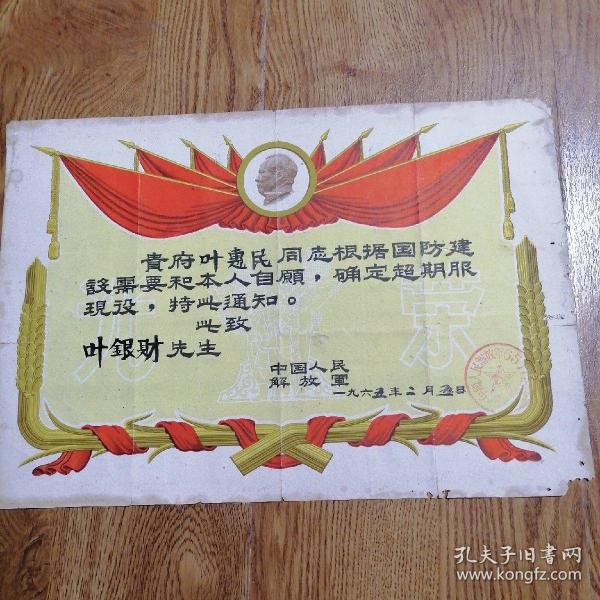 貴府叶惠民同志根据国防建
設需要和本人自願，确定超期服
現役，特此通知。
此致
叶銀財先生
中国人民
解放軍
一九六五年二月五日
光
荣
孔夫子旧书网
www.kongfz.com